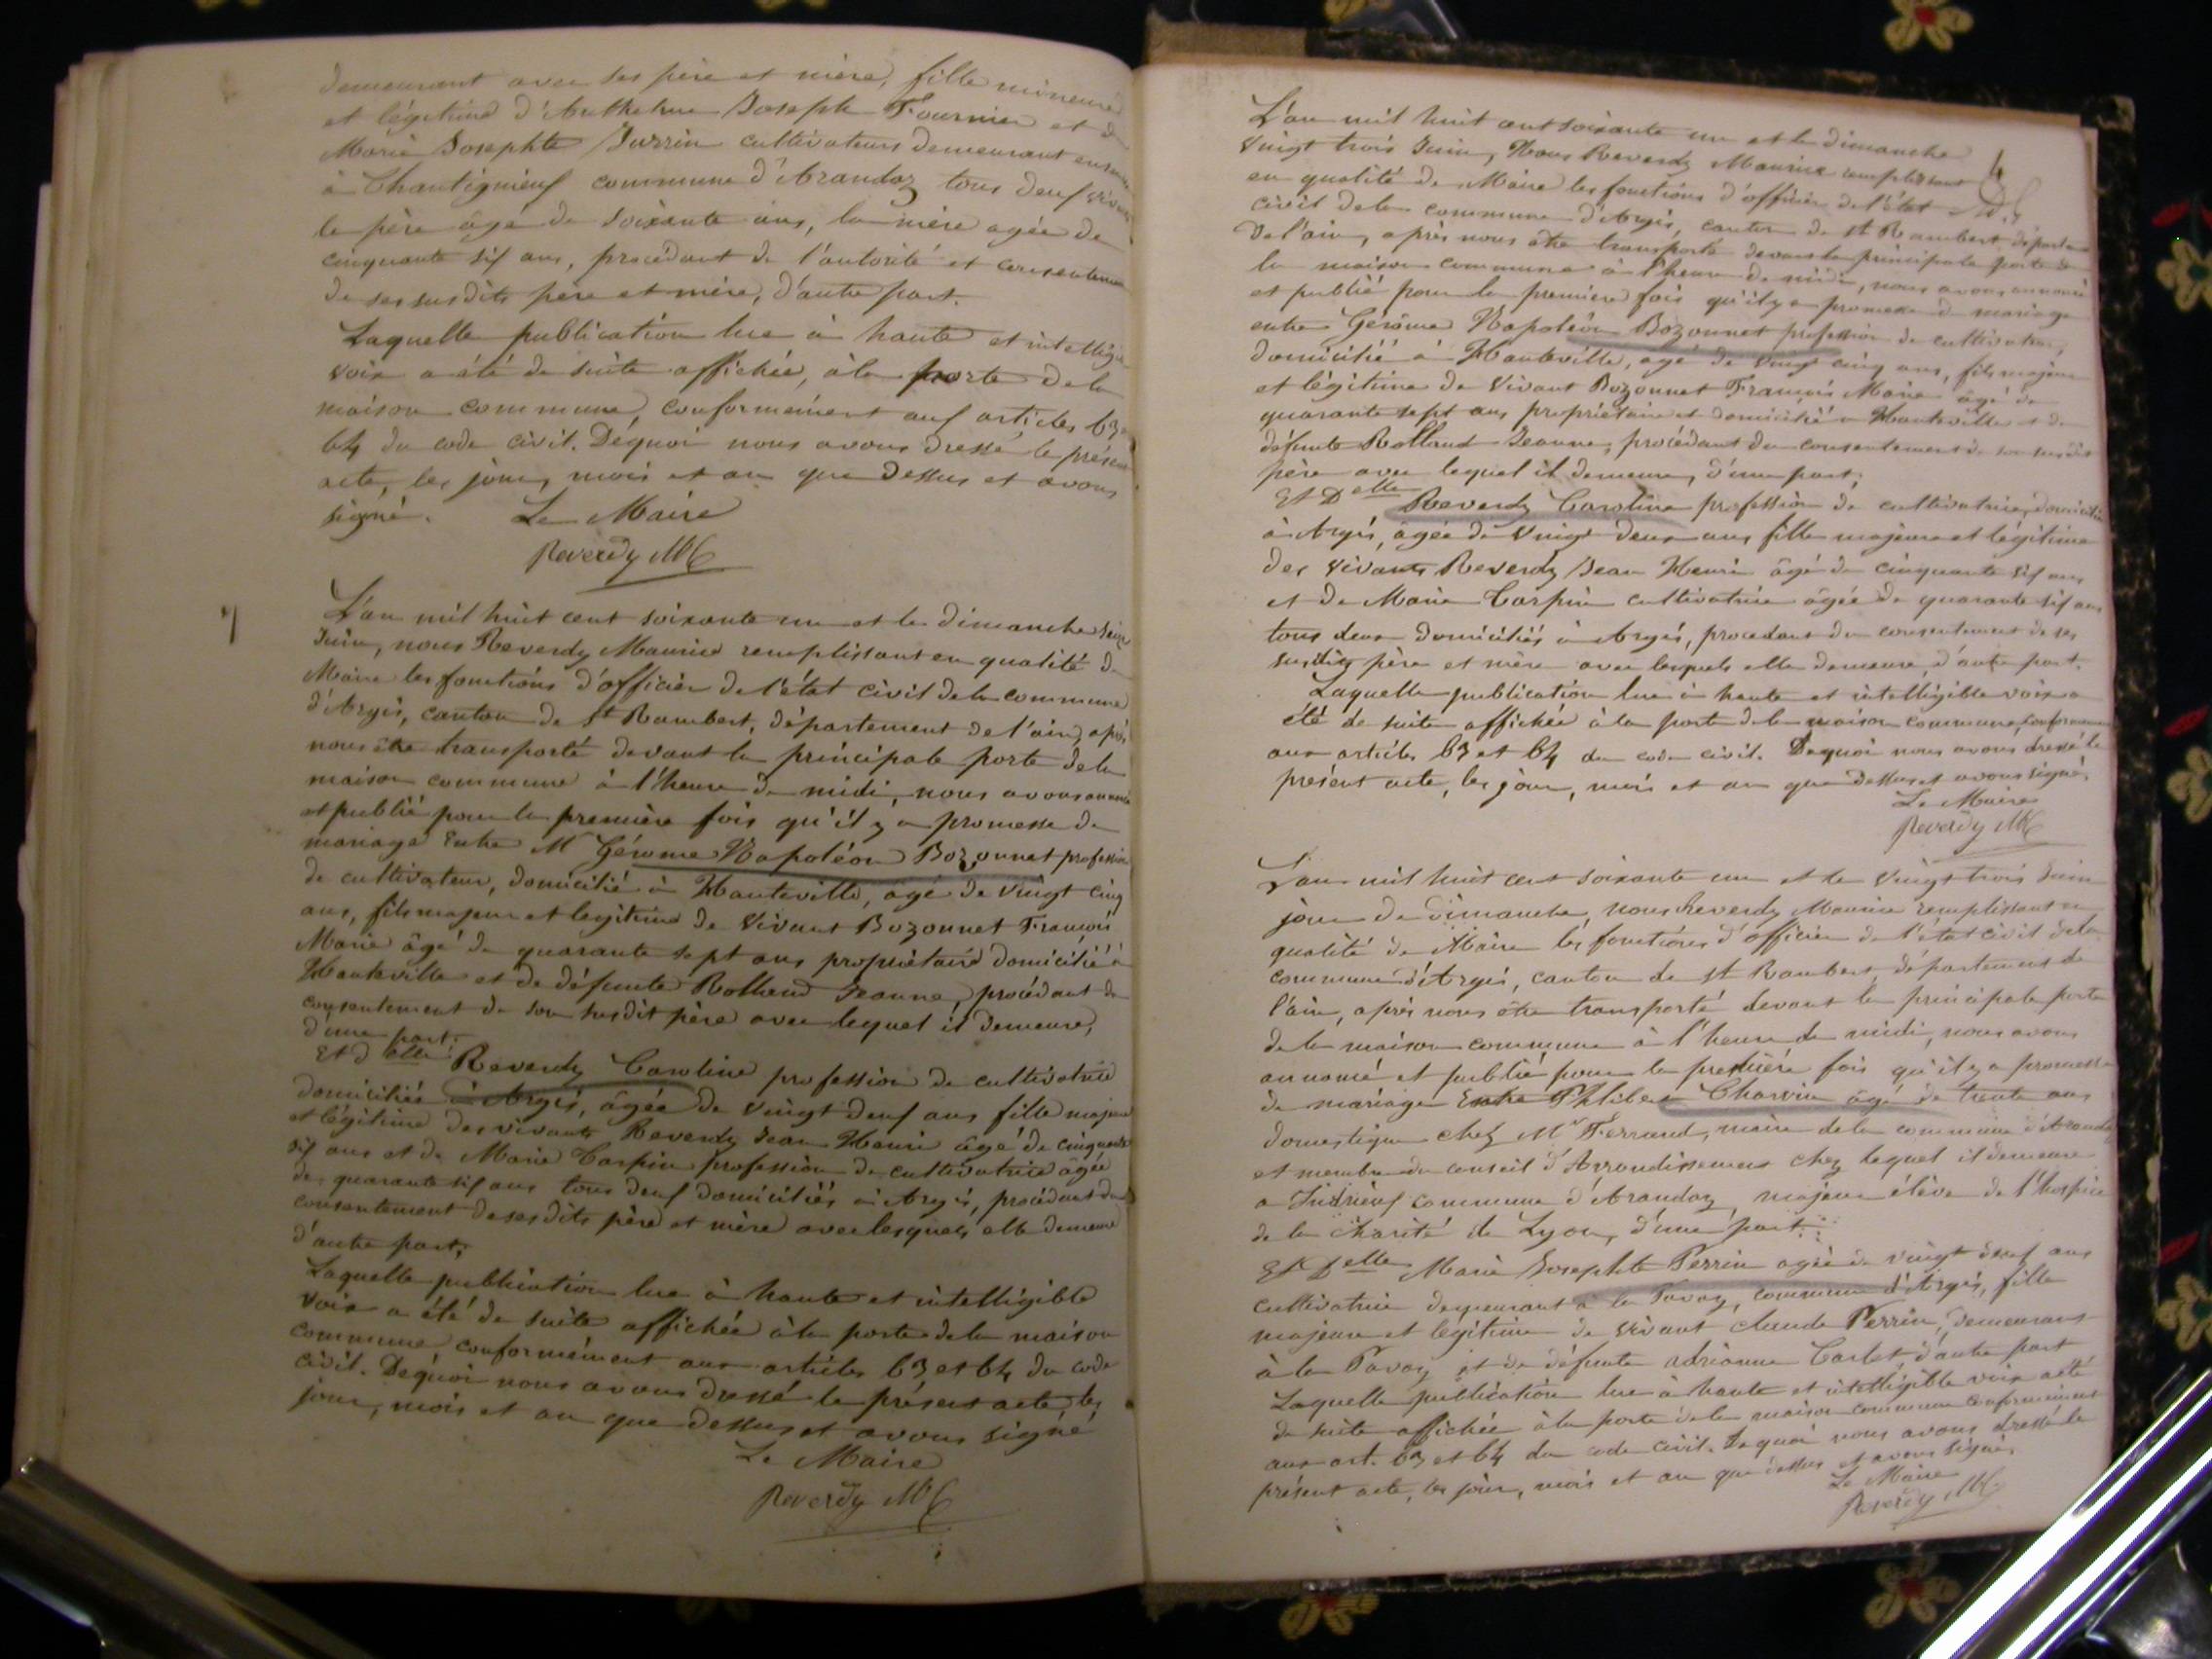 demeurant avec ses père et mère, fille mineure
et légitime d'Anthelme Joseph Fournier et de
Marie Josephte Jurrin cultivateurs demeurant
à Chantignieuf commune d'Arandaz tous deuf
le père âgé de soixante ans, la mère agée de
cinquante sif ans, procédant de l'autorité et
de ses susdits père et mère, d'autre part.
Laquelle publication lue à haute et
voix a été de suite affichée, à la porte de la
maison commune, conformément auf articles 63
64 du code civil. Dequoi nous avons dressé le
acte, les jour, mois et an que dessus et avons
signé. Le Maire
Reverdy
7
L'an mil huit cent soixante un et le dimanche seize
Juin, nous Reverdy Maurice remplissant en qualité de
Maire les fonctions d'officier de l'état civil de la commune
d'Argis, canton de St Rambert, département de l'ain, après
nous être transporté devant la principale porte de la
maison commune à l'heure de midi, nous avons
et publié pour la première fois qu'il y a promesse de
mariage Entre Mr Gérome Napoléon Bozonnet profession
de cultivateur, domicilié à Hauteville, âgé de vingt cinq
ans, fils majeur et légitime de vivant Bozonnet François
Marie âgé de quarante sept ans propriétaire domicilié à
Hauteville et de défunte Rolland Jeanne, procédant du
consentement de son susdit père avec lequel il demeure,
d'une part.
Et D elle Reverdy Caroline profession de cultivatrice
domiciliée à Argis, âgée de vingt deuf ans fille majeure
et légitime des vivants Reverdy Jean Henri âgé de cinquante
sif ans et de Marie Carpin profession de cultivatrice âgée
de quarante sif ans tous deuf domiciliés à Argis, procédant du
consentement de ses dits père et mère avec lesquels elle demeure
d'autre part,
Laquelle publication lue à haute et intelligible
voix a été de suite affichée à la porte de la maison
commune, conformément aux articles 63 et 64 du code
civil. Dequoi nous avons dressé le présent acte, les
jour, mois et an que dessus et avons signé
Le Maire
Reverdy
L'an mil huit cent soixante un et le dimanche
vingt trois Juin, Nous Reverdy Maurice remplissant
en qualité de Maire les fonctions d'officier de l'état
civil de la commune d'Argis, canton de St Rambert,
de l'ain, après nous être transporté devant la principale porte de
la maison commune à l'heure de midi, nous avons annoncé
et publié pour la première fois qu'il y a promesse de mariage
entre Gérôme Napoléon Bozonnet profession de cultivateur,
domicilié à Hauteville, agé de vingt cinq ans, fils majeur
et légitime de vivant Bozonnet François Marie âgé de
quarante sept ans propriétaire et domicilié à Hauteville et de
défunte Rolland Jeanne, procédant du consentement de son susdit
père avec lequel il demeure, d'une part,
Et D elle Reverdy Caroline profession de cultivatrice, domiciliée
à Argis, âgée de vingt deux ans fille majeure et légitime
des vivants Reverdy Jean Henri âgé de cinquante sif ans
et de Marie Carpin cultivatrice âgée de quarante sif ans
tous deux domiciliés à Argis, procedant du consentement de ses
susdits père et mère avec lesquels elle demeure, d'autre part.
Laquelle publication lue à haute et intelligible voix a
été de suite affichée à la porte de la maison commune,
aux articles 63 et 64 du code civil. Dequoi nous avons dressé le
présent acte, les jour, mois et an que dessus et avons signé.
Le Maire
Reverdy
L'an mil huit cent soixante un et le vingt trois Juin
jour de dimanche, nous Reverdy Maurice remplissant en
qualité de Maire les fonctions d'officier de l'état civil de la
commune d'Argis, canton de St Rambert département de
l'ain, après nous être transporté devant la principale porte
de la maison commune à l'heure de midi, nous avons
annoncé et publié pour la première fois qu'il y a promesse
de mariage Entre Philibert Charvin âgé de trente ans
domestique chez Mr Ferrand, maire de la commune d'Arandaz
et membre du conseil d'Arrondissement chez lequel il demeure
a Indrieuf commune d'Arandaz, majeur élève de l'hospice
de la charité de Lyon, d'une part.
Et Delle Marie Josephte Perrin agée de vingt ans
cultivatrice demeurant à la Tavoz, commune d'Argis, fille
majeure et légitime de vivant claude Perrin, demeurant
à la Tavoz et de défunte adrianne Carlet, d'autre part
Laquelle publication lue à haute et intelligible voix a été
de suite affichée à la porte de la maison commune conformément
aux art. 63 et 64 du code civil. Dequoi nous avons dressé le
présent acte, les jour, mois et an que dessus et avons signé.
Le Maire
Reverdy